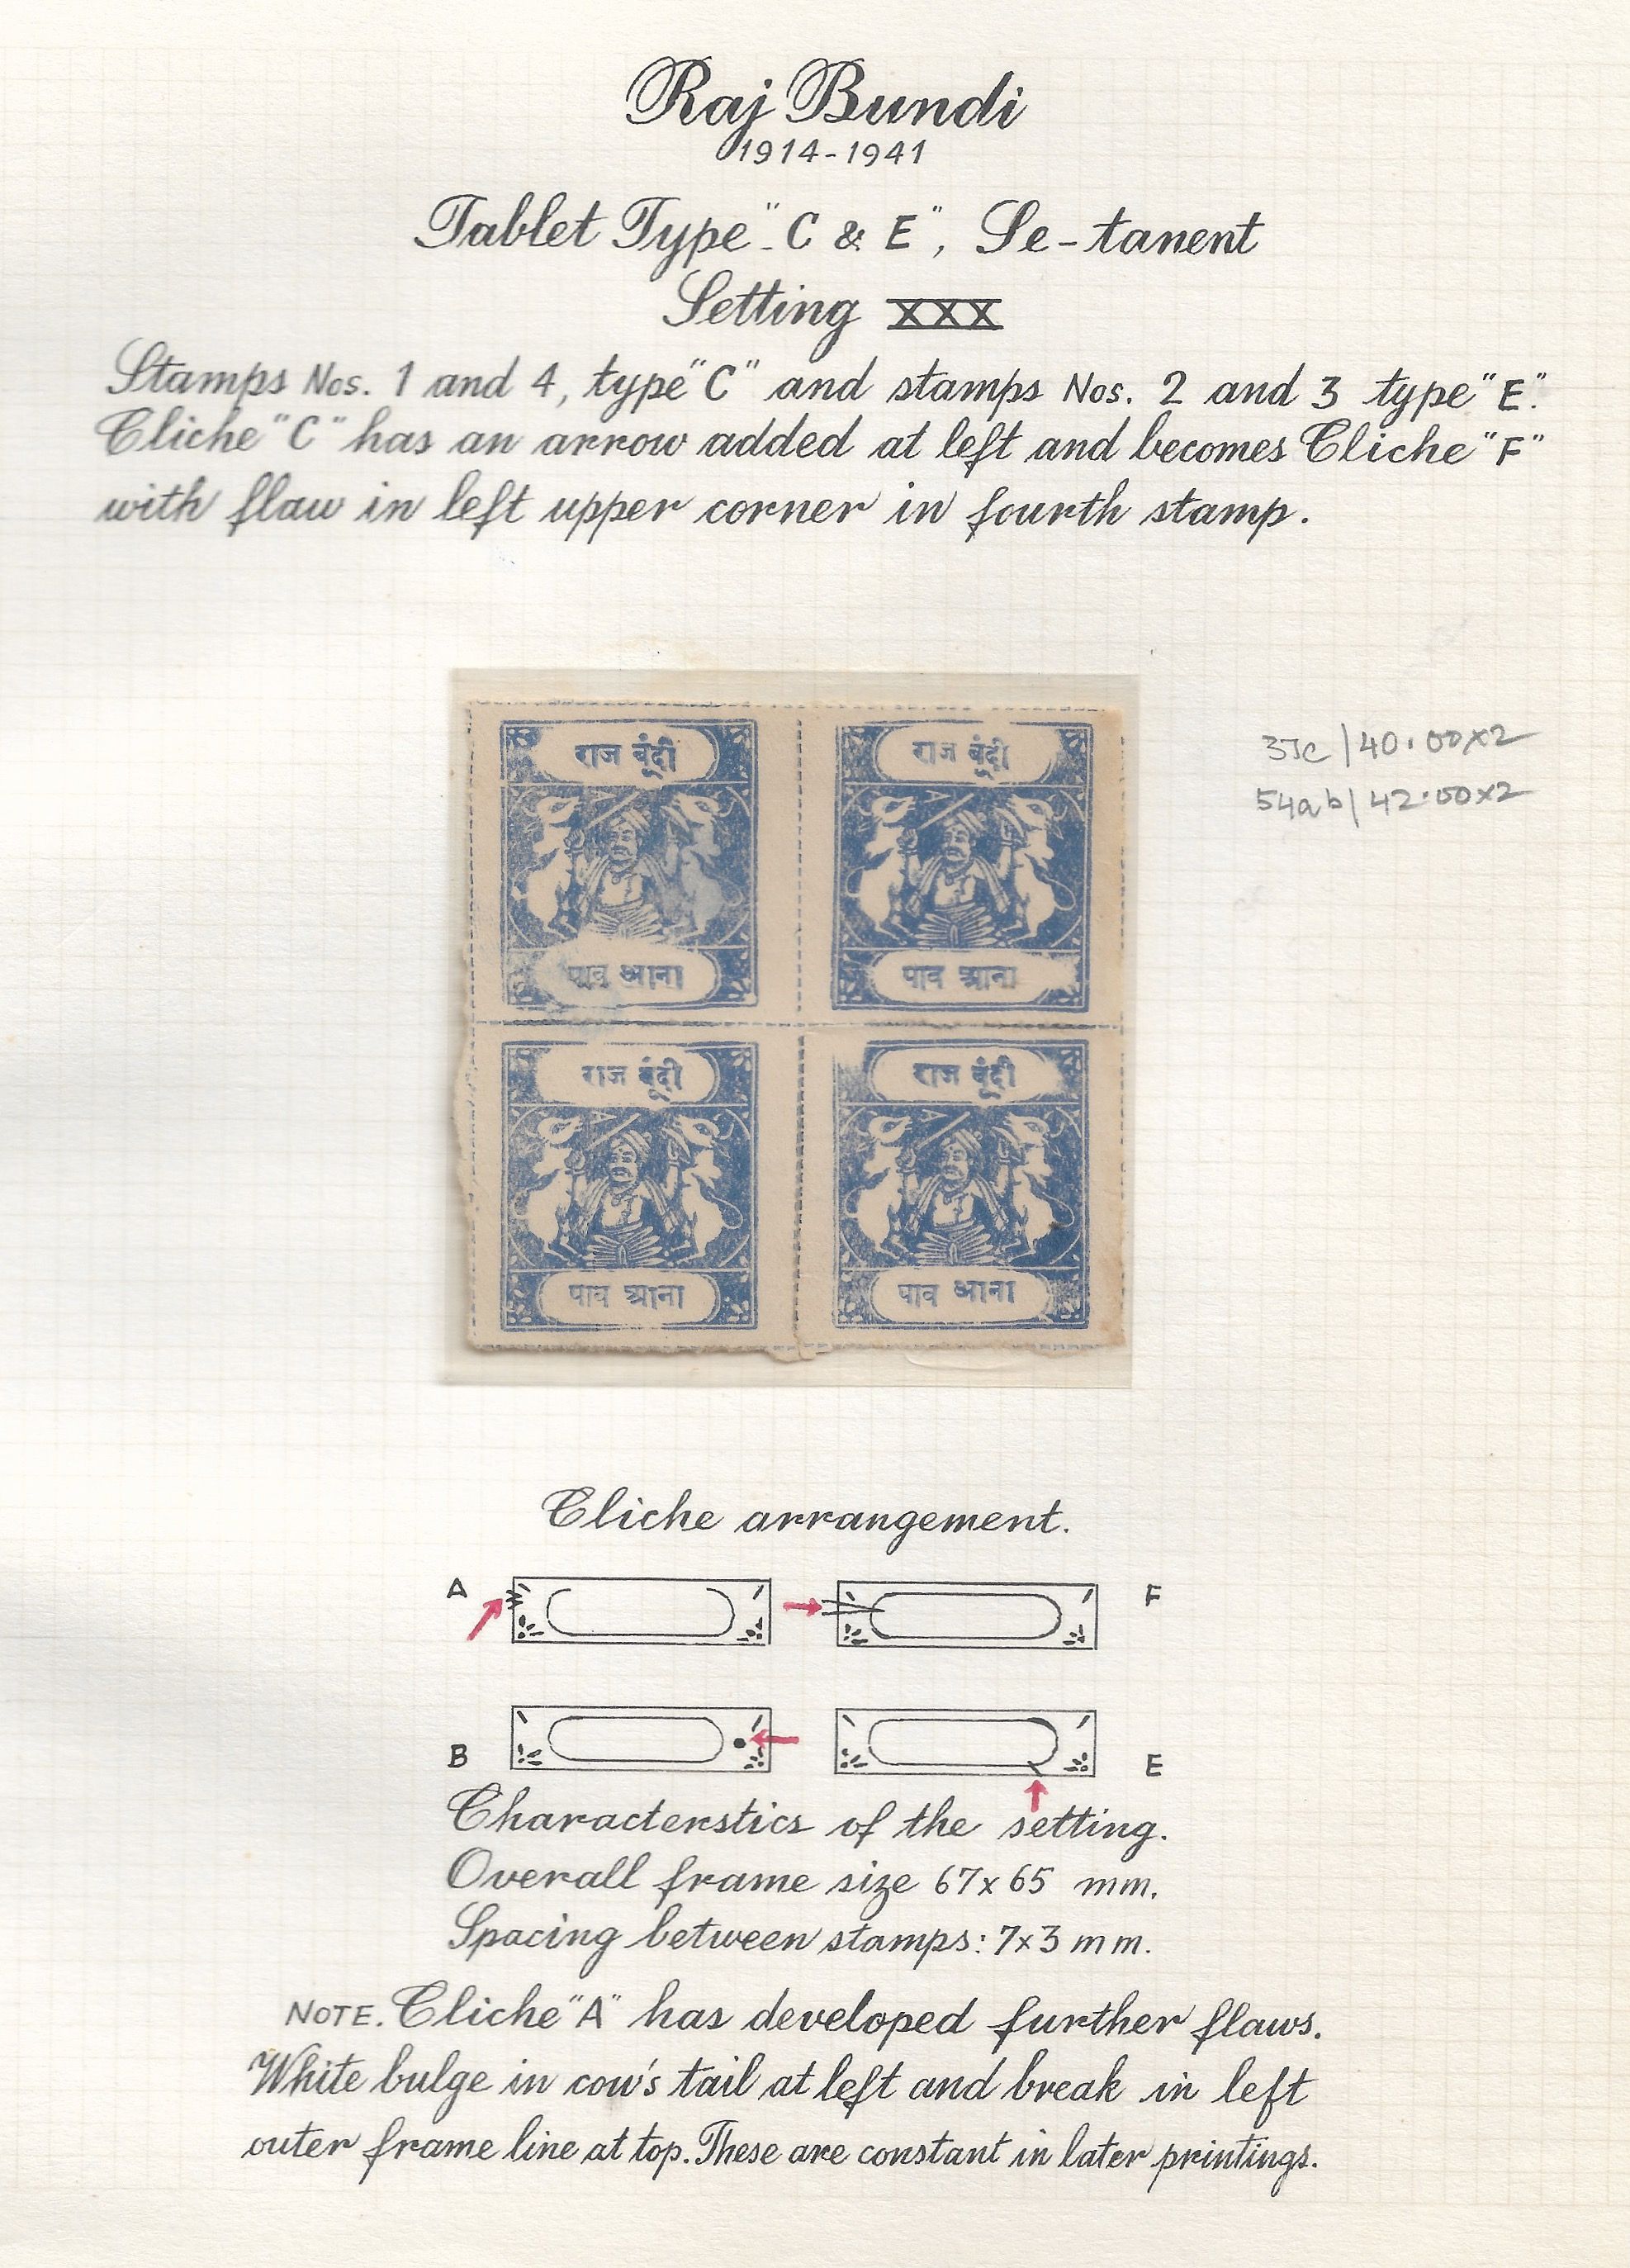 Raj Bundi
1914-1941
Tablet Type "C & E", Se-tanent
Setting XXX
Stamps Nos. 1 and 4, type "C" and stamps Nos. 2 and 3 type "E".
Cliche "C" has an arrow added at left and becomes Cliche "F"
with flaw in left upper corner in fourth stamp.
राज बूंदी राज बूंदी
पाव आना पाव आना
राज बूंदी राज बूंदी
पाव आना पाव आना
40.00x2
54ab/42.00x2
Cliche arrangement.
A F
B E
Characterstics of the setting.
Overall frame size 67x65 mm.
Spacing between stamps: 7x3 mm.
NOTE. Cliche "A" has developed further flaws.
White bulge in cow's tail at left and break in left
outer frame line at top. These are constant in later printings.